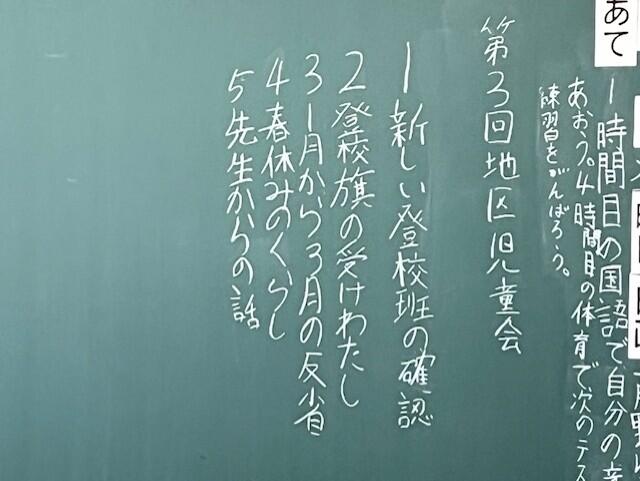 あて
1時間目の国語で自分の
あおう。4時間目の体育で次のテス
練習をがんばろう。
第3回地区児童会
1新しい登校班の確認
2登校旗の受けわたし
31月から3月の反省
4春休みのくらし
5先生からの話